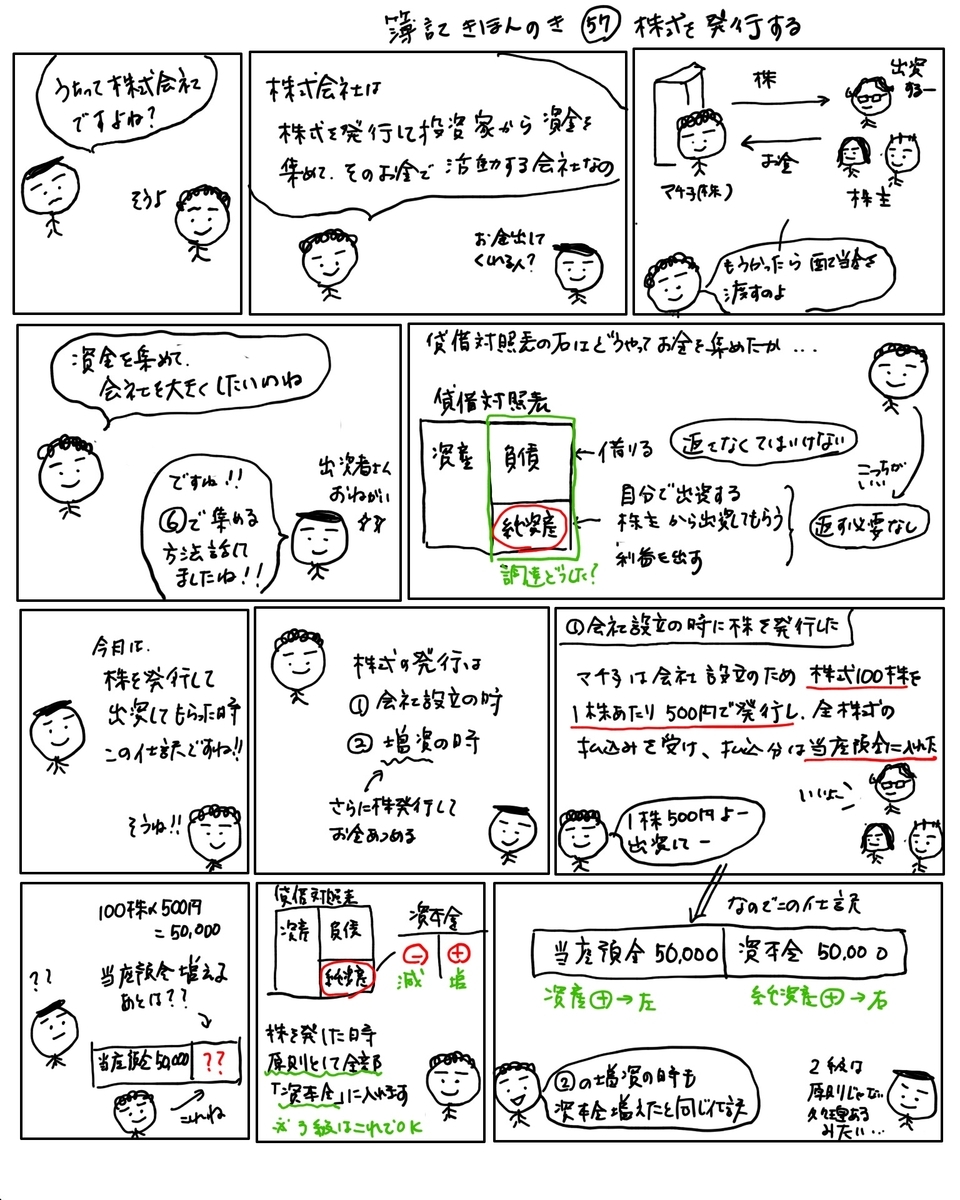 簿記きほんのき 57 株式を発行する
うちって株式会社
ですよね?
そうよ
株式会社は
株式を発行して投資家から資金を
集めて、そのお金で活動する会社なの
お金出して
くれる人?
株
出資
するー
お金
マチ子(株)
株主
もうかったら配当金を
渡すのよ
資金を集めて、
会社を大きくしたいのね
ですね!!
⑥で集める
方法話して
ましたね!!
出資者さん
おねがい
貸借対照表の右はどうやってお金を集めたか...
貸借対照表
資産
負債
←借りる
返さなくてはいけない
純資産
自分で出資する
株主から出資してもらう
利益を出す
こっちが
いい
返す必要なし
調達どうした?
今日は、
株を発行して
出資してもらった時
この仕訳ですね!!
そうね!!
株式の発行は
① 会社設立の時
② 増資の時
さらに株発行して
お金あつめる
①会社設立の時に株を発行した
マチ子は会社設立のため 株式100株を
1株あたり500円で発行し、全株式の
払込みを受け、払込分は当座預金に入れた
いいよー
1株500円よー
出資してー
100株×500円
=50,000
??
当座預金増える
あとは??
当座預金50,000 ??
これね
貸借対照表
資産
負債
純資産
資本金
⊖ ⊕
減 増
株を発した時
原則として全部
「資本金」に入れます
※3級はこれでOK
なのでこの仕訳
当座預金 50,000 資本金 50,000
資産⊕→左
純資産⊕→右
②の増資の時も
資本金増えたと同じ仕訳
2級は
原則じゃない
処理ある
みたい...